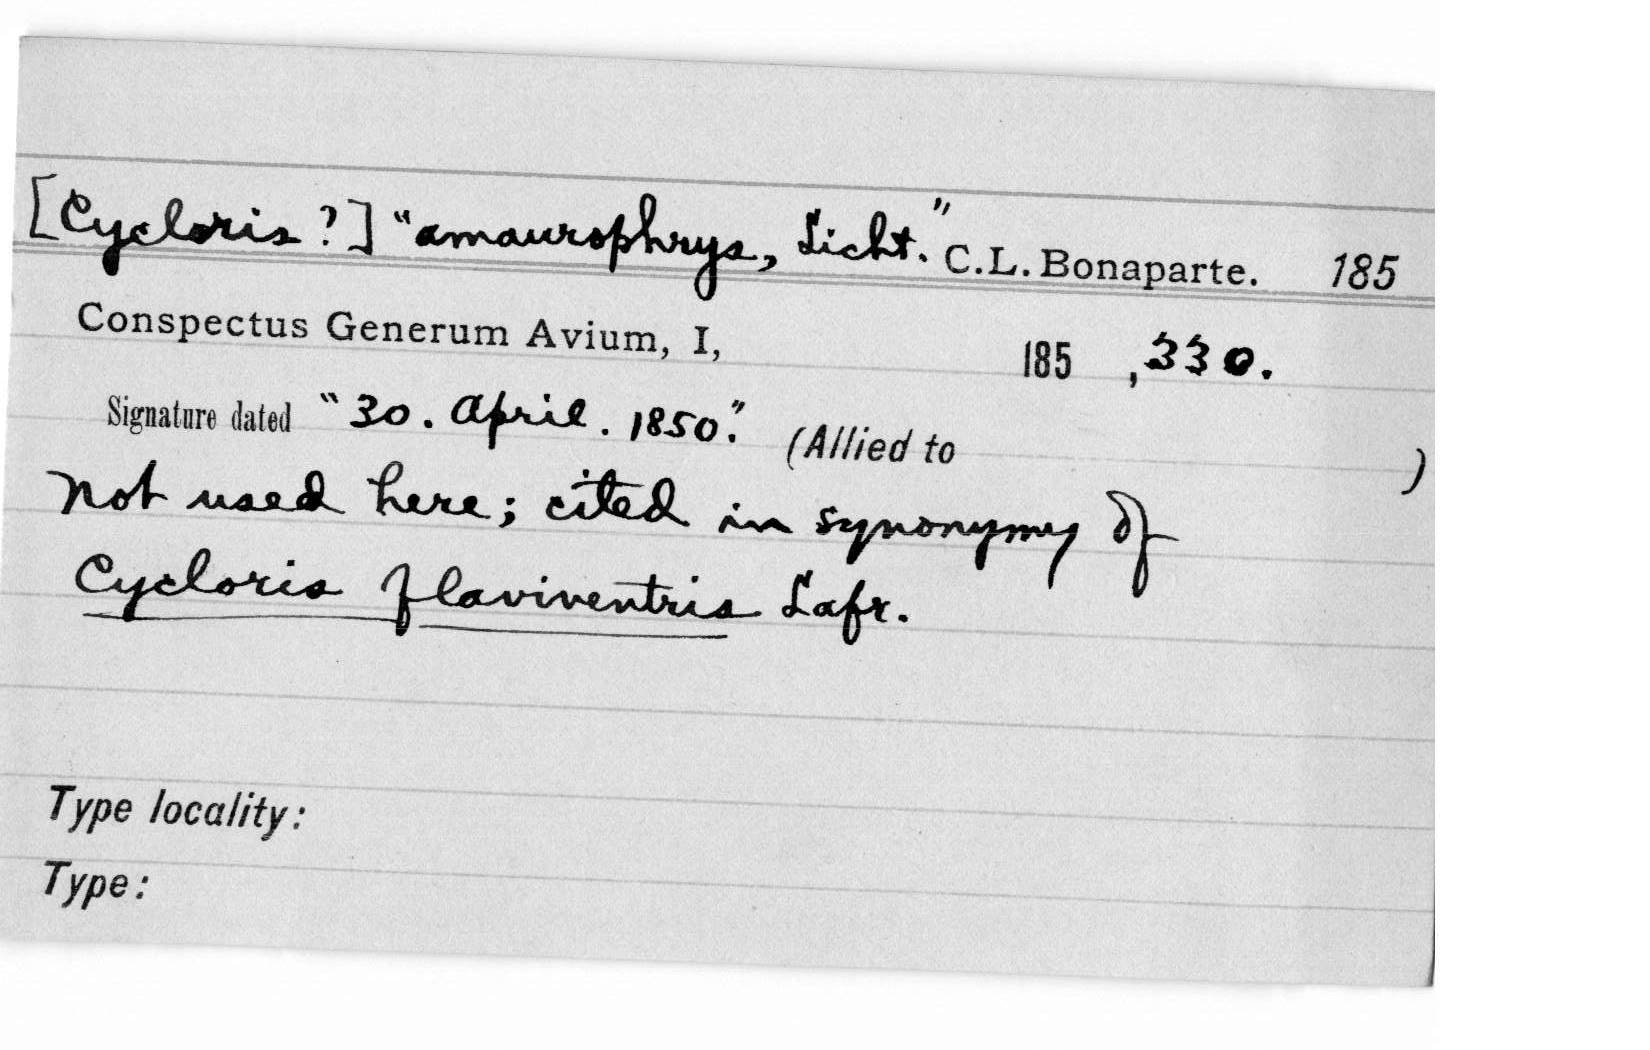 [Cycloris ?] "amaurophrys, Licht." C.L. Bonaparte. 185
Conspectus Generum Avium, I, 185 , 330.
Signature dated "30. April. 1850." (Allied to )
Not used here; cited in synonymy of
Cycloris flaviventris Lafr.
Type locality:
Type: